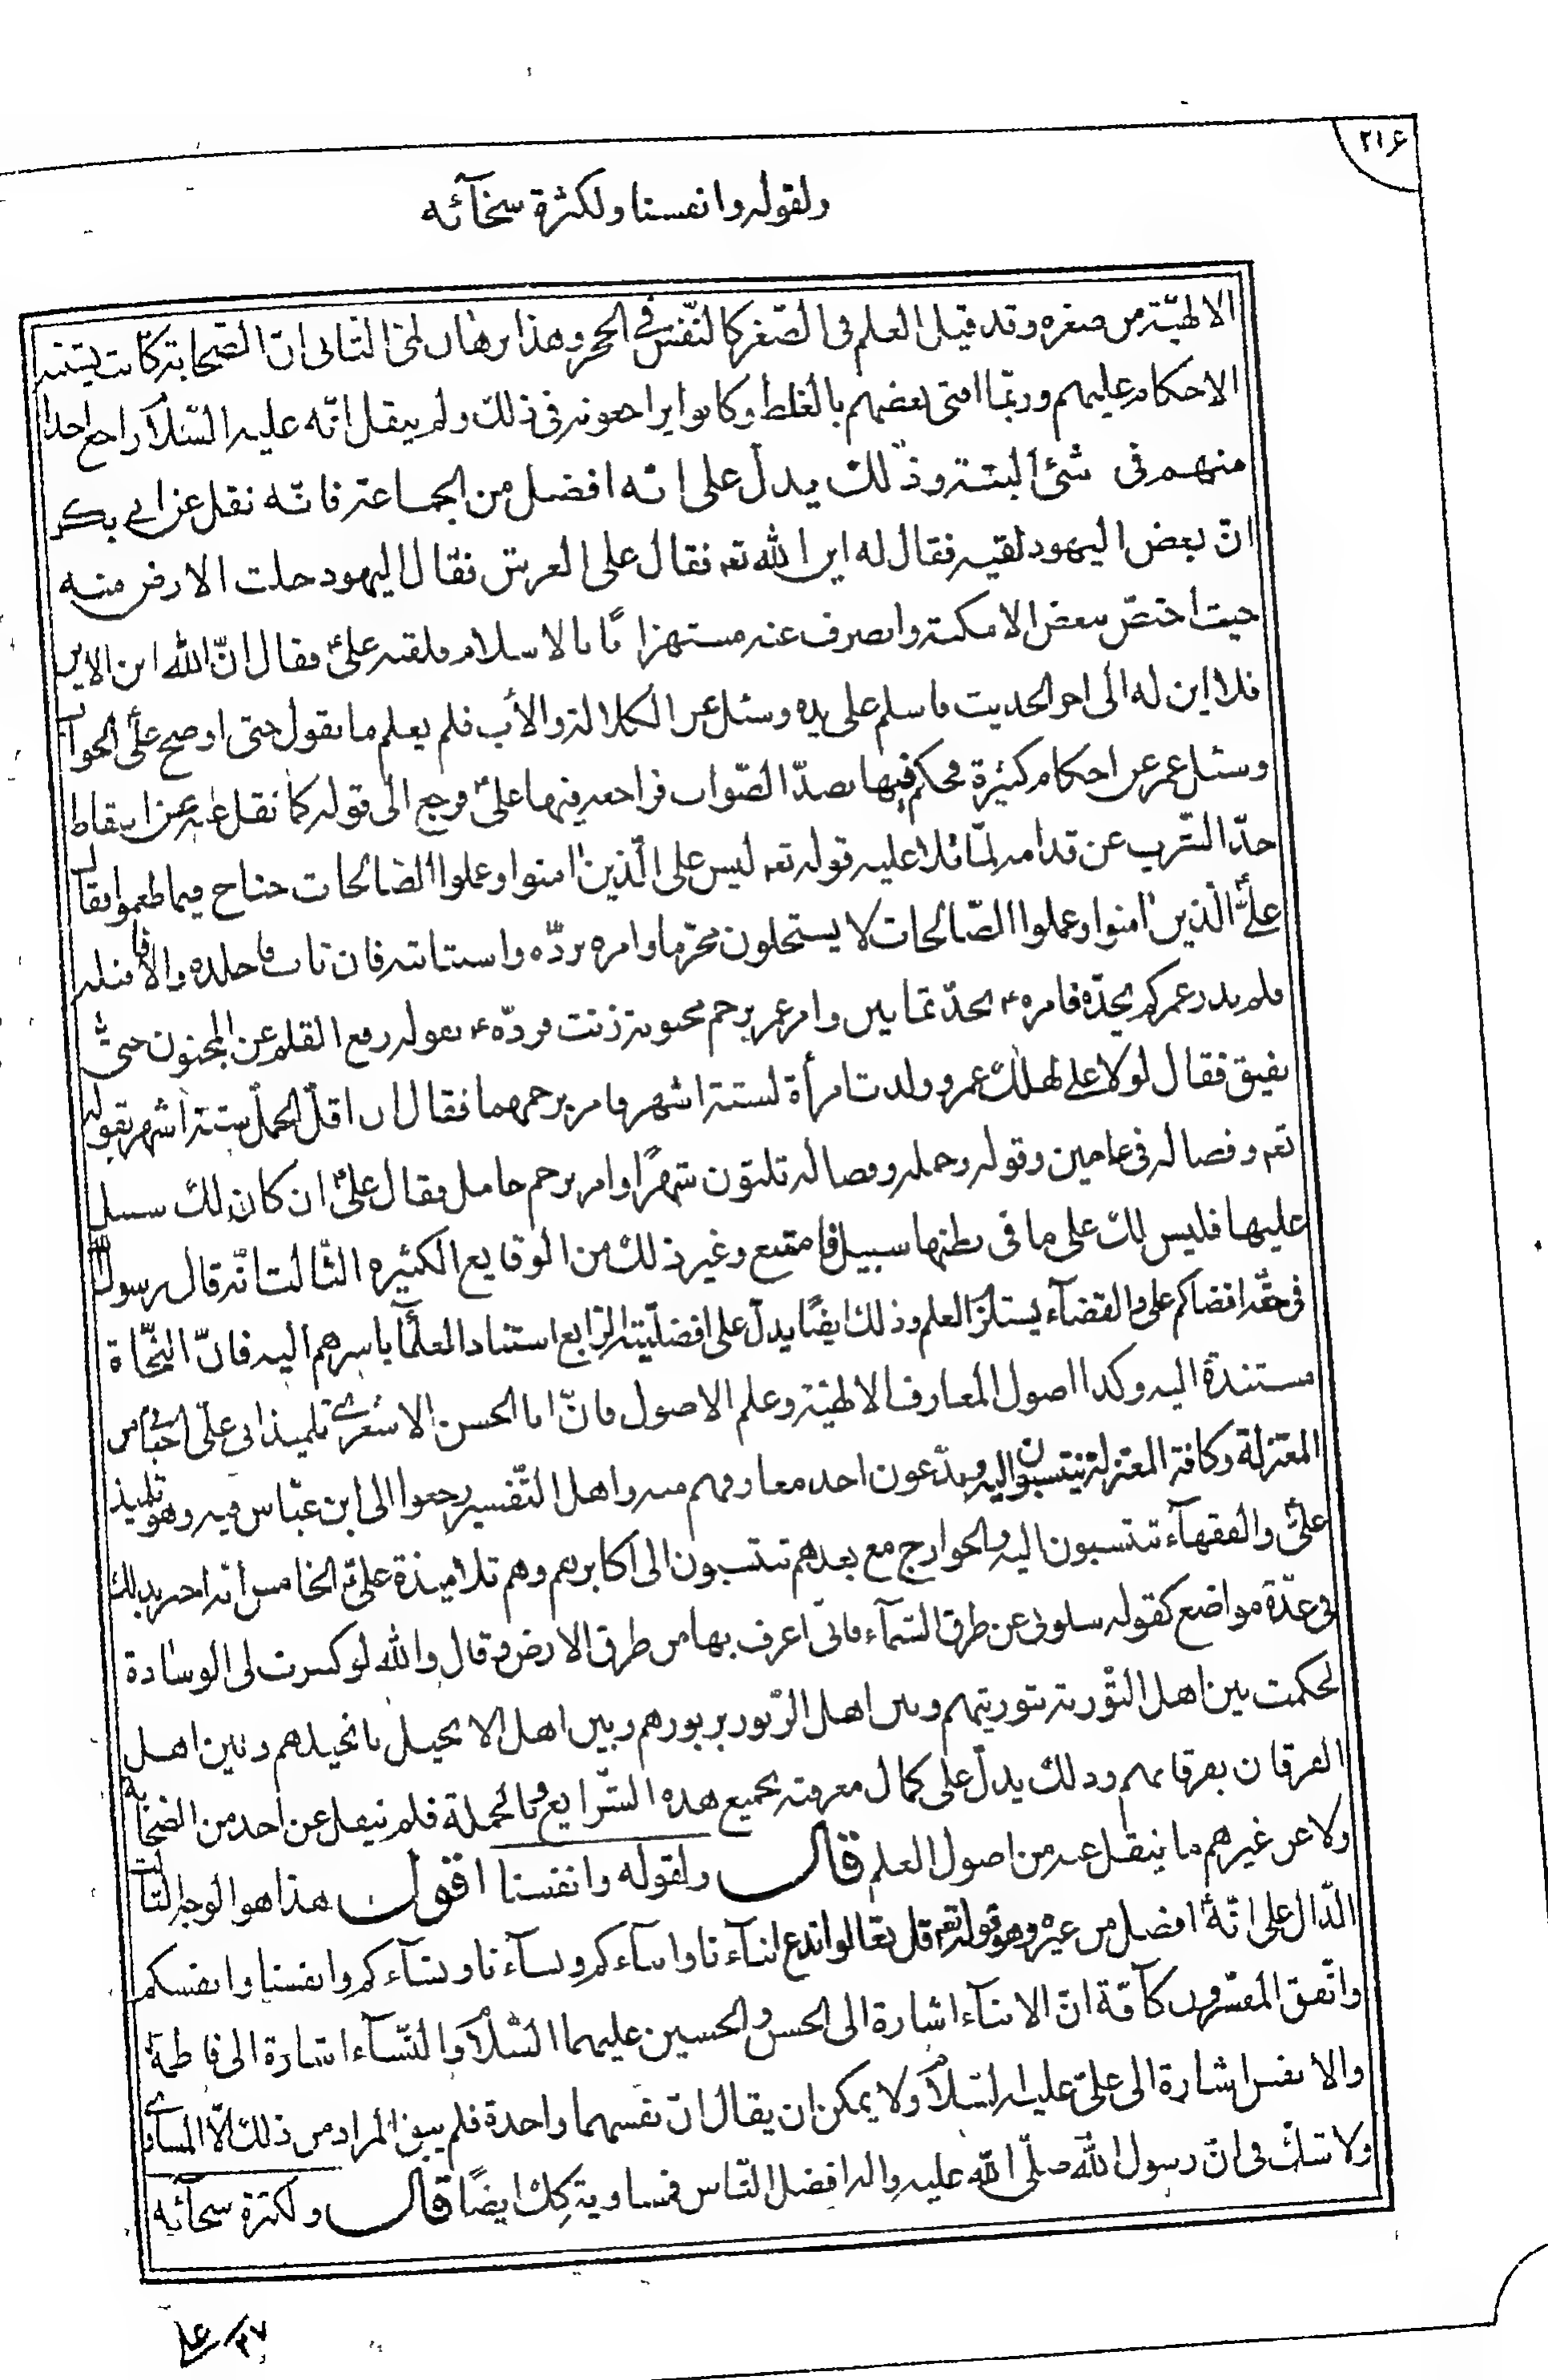 ٢١۶
ولقوله وانفسنا ولكثرة سخآئه
الالهيّة من صغره وقد قيل العلم فى الصّغر كالنّقش فى الحجر وهذا برهان لمّى الثانى انّ الصّحابة كانت تشتبه
الاحكام عليهم وربّما افتى بعضهم بالغلط وكانوا يراجعونه فى ذلك ولم ينقل انّه عليه السّلام راجع احدا
منهم فى شئ البتّة وذلك يدلّ على انّه افضل من الجماعة فانّه نقل عن ابى بكر
انّ بعض اليهود لقيه فقال له اين الله تعه فقال على العرش فقال اليهود خلت الارض منه
حيث اختصّ ببعض الامكنة وانصرف عنه مستهزا ئًا بالاسلام فلقيه علىّ فقال انّ الله اين الاين
فلا اين له الى اخر الحديث فاسلم على يده وسئل عن الكلالة والأبّ فلم يعلم ما يقول حتى اوضح علىّ الجواب
وسئل عمر عن احكام كثيرة فحكم فيها بضدّ الصّواب فراجعه فيها علىّ فرجع الى قوله كما نقل عنه عن اسقاط
حدّ الشّرب عن قدامه لمّا تلا عليه قوله تعه ليس على الّذين امنوا وعملوا الصّالحات جناح فيما طعموا فقال
علىّ الّذين امنوا وعملوا الصّالحات لا يستحلون محرّما وامره بردّه واستتابته فان تاب فاجلده والّا فاقتله
فلم يدر عمر كم يحدّه فامره ع بحدّ ثمانين وامر عمر برجم مجنونة زنت فردّه ع بقوله رفع القلم عن المجنون حتى
يفيق فقال لولا على لهلك عمر وولدت امرأة لستّة اشهر فامر برجمها فقال ان اقلّ الحمل ستّة اشهر بقوله
تعه وفصاله فى عامين وقوله وحمله وفصاله ثلثون شهرًا وامر برجم حامل فقال علىّ ان كان لك سبيل
عليها فليس لك على ما فى بطنها سبيل فامتنع وغير ذلك من الوقايع الكثيره الثّالث انّه قال رسول الله
فى حقّه اقضاكم على والقضآء يستلزم العلم وذلك ايضًا يدلّ على افضليّته الرّابع استناد العلمآء باسرهم اليه فانّ النّحاة
مستندة اليه وكذا اصول المعارف الالهيّة وعلم الاصول فانّ ابا الحسن الاشعرى تلميذ ابى علىّ الجبّائى من
المعتزلة وكافة المعتزلة ينتسبون اليه ويدّعون اخذ معارفهم منه واهل التّفسير رجعوا الى ابن عبّاس فيه وهو تلميذ
علىّ والفقهآء تنتسبون اليه والخوارج مع بعدهم تنتسبون الى اكابرهم وهم تلاميذة علىّ الخامس انّه اخبر بذلك
فى عدّة مواضع كقوله سلونى عن طرق السّمآء فانّى اعرف بها من طرق الارض وقال والله لو كسرت لى الوسادة
لحكمت بين اهل التّورية بتوريتهم وبين اهل الزّبور بزبورهم وبين اهل الانجيل بانجيلهم وبين اهل
الفرقان بفرقانهم وذلك يدلّ على كمال معرفته بجميع هذه الشّرايع وبالجملة فلم ينقل عن احد من الصّحابة
ولا عن غيرهم ما نقل عنه من اصول العلم قال ولقوله وانفسنا اقول هذا هو الوجه الثّالث
الدّال على انّه افضل من غيره وهو قوله تعه قل تعالوا ندع ابنآء نا وابنآء كم ونسآء نا ونسآء كم وانفسنا وانفسكم
واتّفق المفسّرون كآفّة انّ الابنآء اشارة الى الحسن والحسين عليهما السّلام والنّسآء اشارة الى فاطمة
والانفس اشارة الى علىّ عليه السّلام ولا يمكن ان يقال انّ نفسهما واحدة فلم يبق المراد من ذلك الّا المساوى
ولا شكّ فى انّ رسول الله صلّى الله عليه واله افضل النّاس فمساويه كك ايضًا قال ولكثرة سخآئه